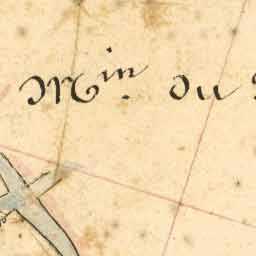 Min. du